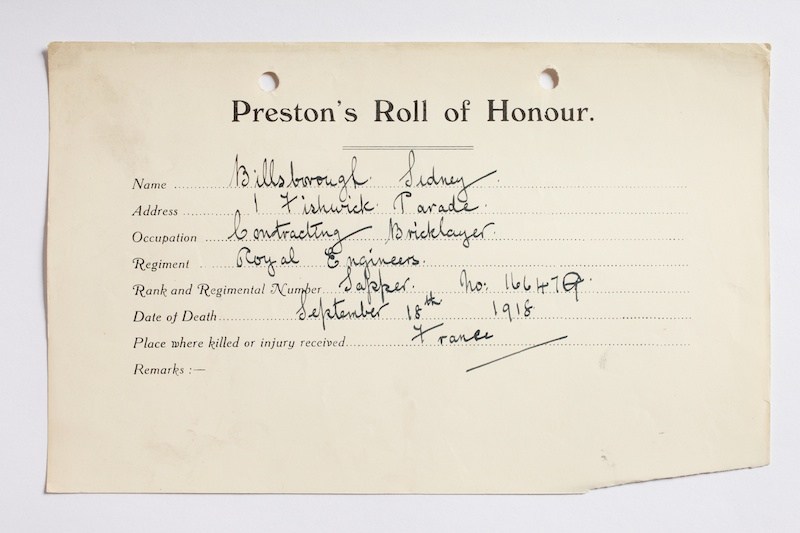 Preston's Roll of Honour.
Name Billsborough. Sidney.
Address 1 Fishwick Parade.
Occupation Contracting Bricklayer.
Regiment Royal Engineers.
Rank and Regimental Number Sapper. No:
Date of Death September 18th 1918
Place where killed or injury received France
Remarks :—